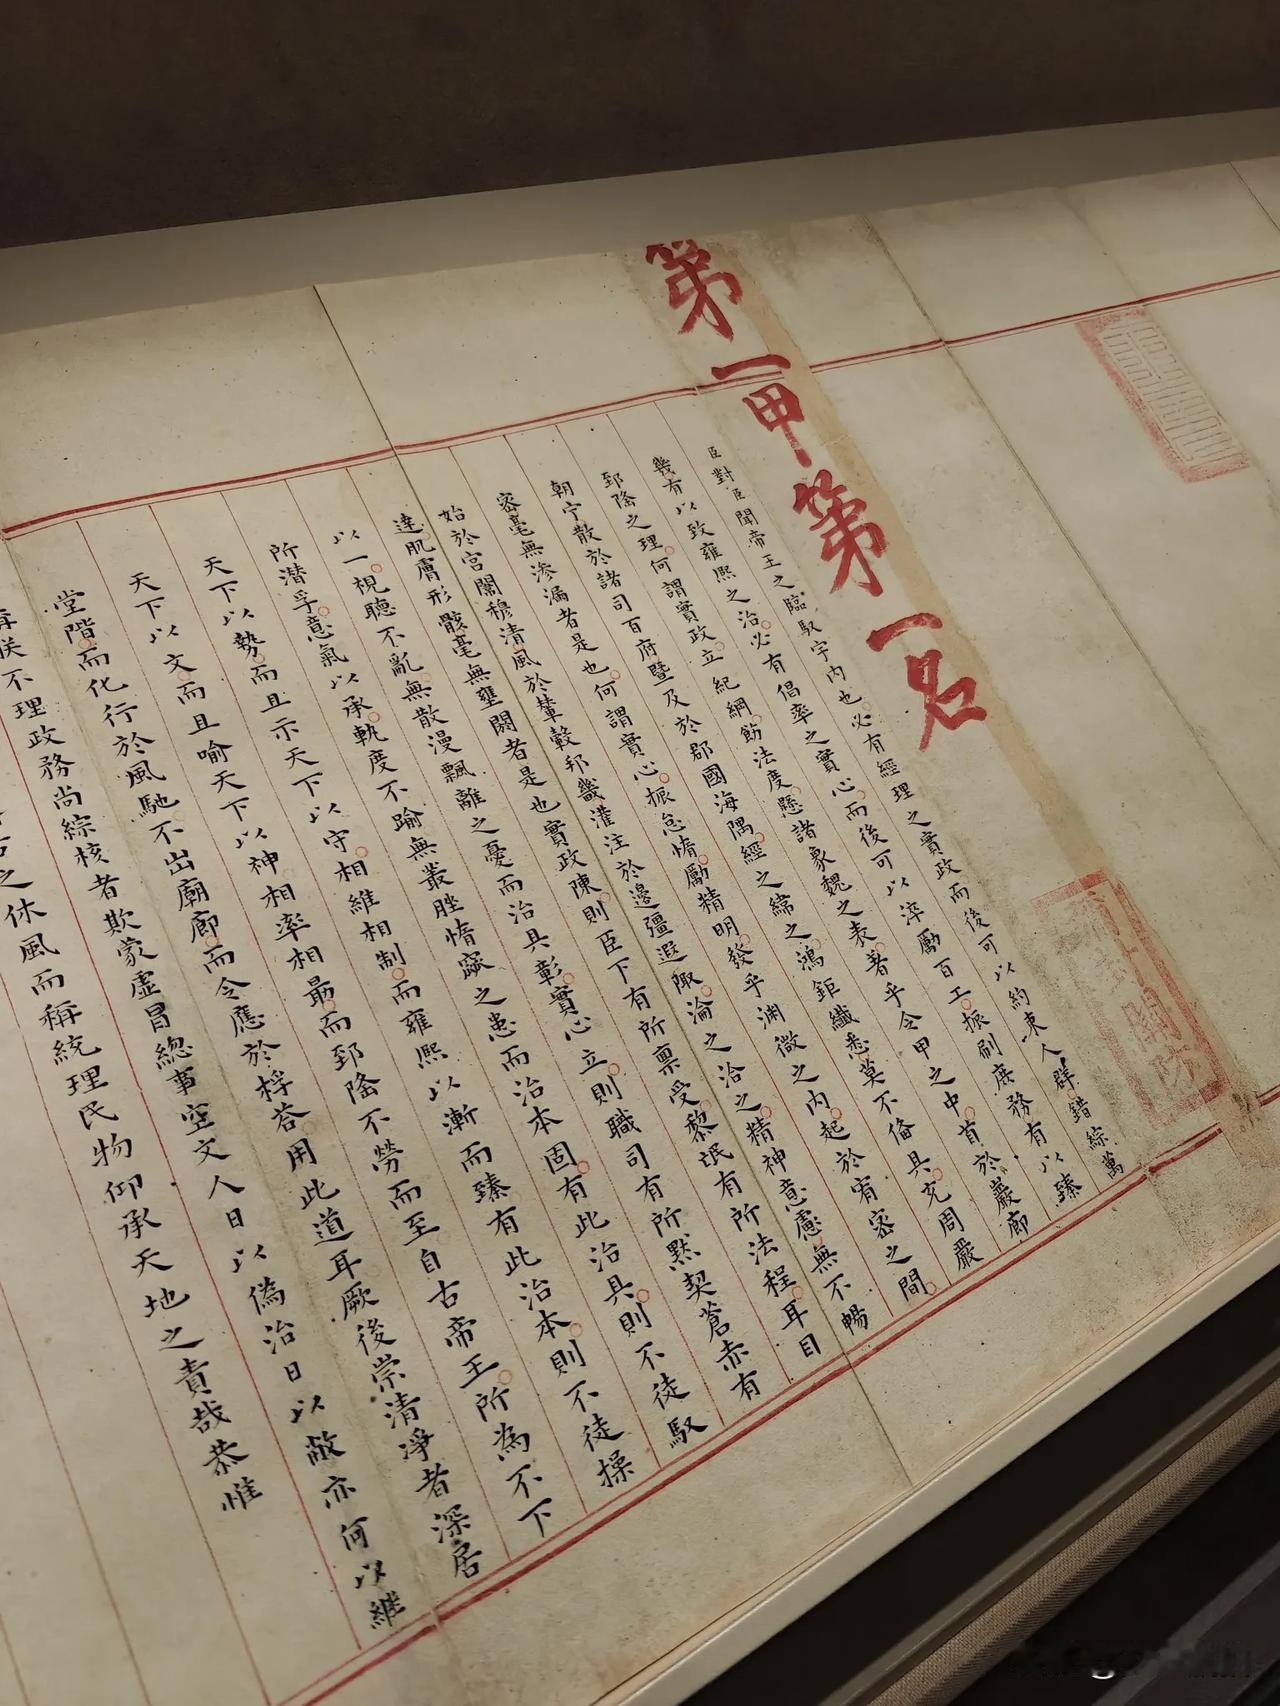 第一甲第一名
臣對臣聞帝王之臨馭宇内也必有經理之實政而後可以約束人群錯綜萬
幾有以致雍熙之治必有倡率之實心而後可以淬勵百工振刷庶務有以臻
郅隆之理何謂實政立紀綱飭法度懸諸象魏之表著乎令甲之中首於巖廊
朝宁散於諸司百府暨及於郡國海隅經之緯之鴻鉅纖悉莫不備具充周嚴
密毫無滲漏者是也何謂實心振怠惰勵精明發乎淵微之内起於宥密之間
始於宮闈穆清風於輦轂邦畿灌注於邊疆遐陬淪之洽之精神意慮無不暢
達肌膚形骸毫無壅閼者是也實政陳則臣下有所禀受黎氓有所法程耳目
以一視聽不亂無散漫飄離之憂而治具彰實心立則職司有所默契蒼赤有
所潜孚意氣以承軌度不踰無叢脞惰窳之患而治本固有此治具則不徒馭
天下以勢而且示天下以守相維相制而雍熙以漸而臻有此治本則不徒操
天下以文而且喻天下以神相率相最而郅隆不勞而至自古帝王所為不下
堂階而化行於風馳不出廟廊而令應於桴答用此道耳厥後崇清凈者深居
不理政務尚綜核者欺蒙虛冒總事空文人日以偽治日以敝亦何以維
之休風而稱統理民物仰承天地之責哉恭惟
關防